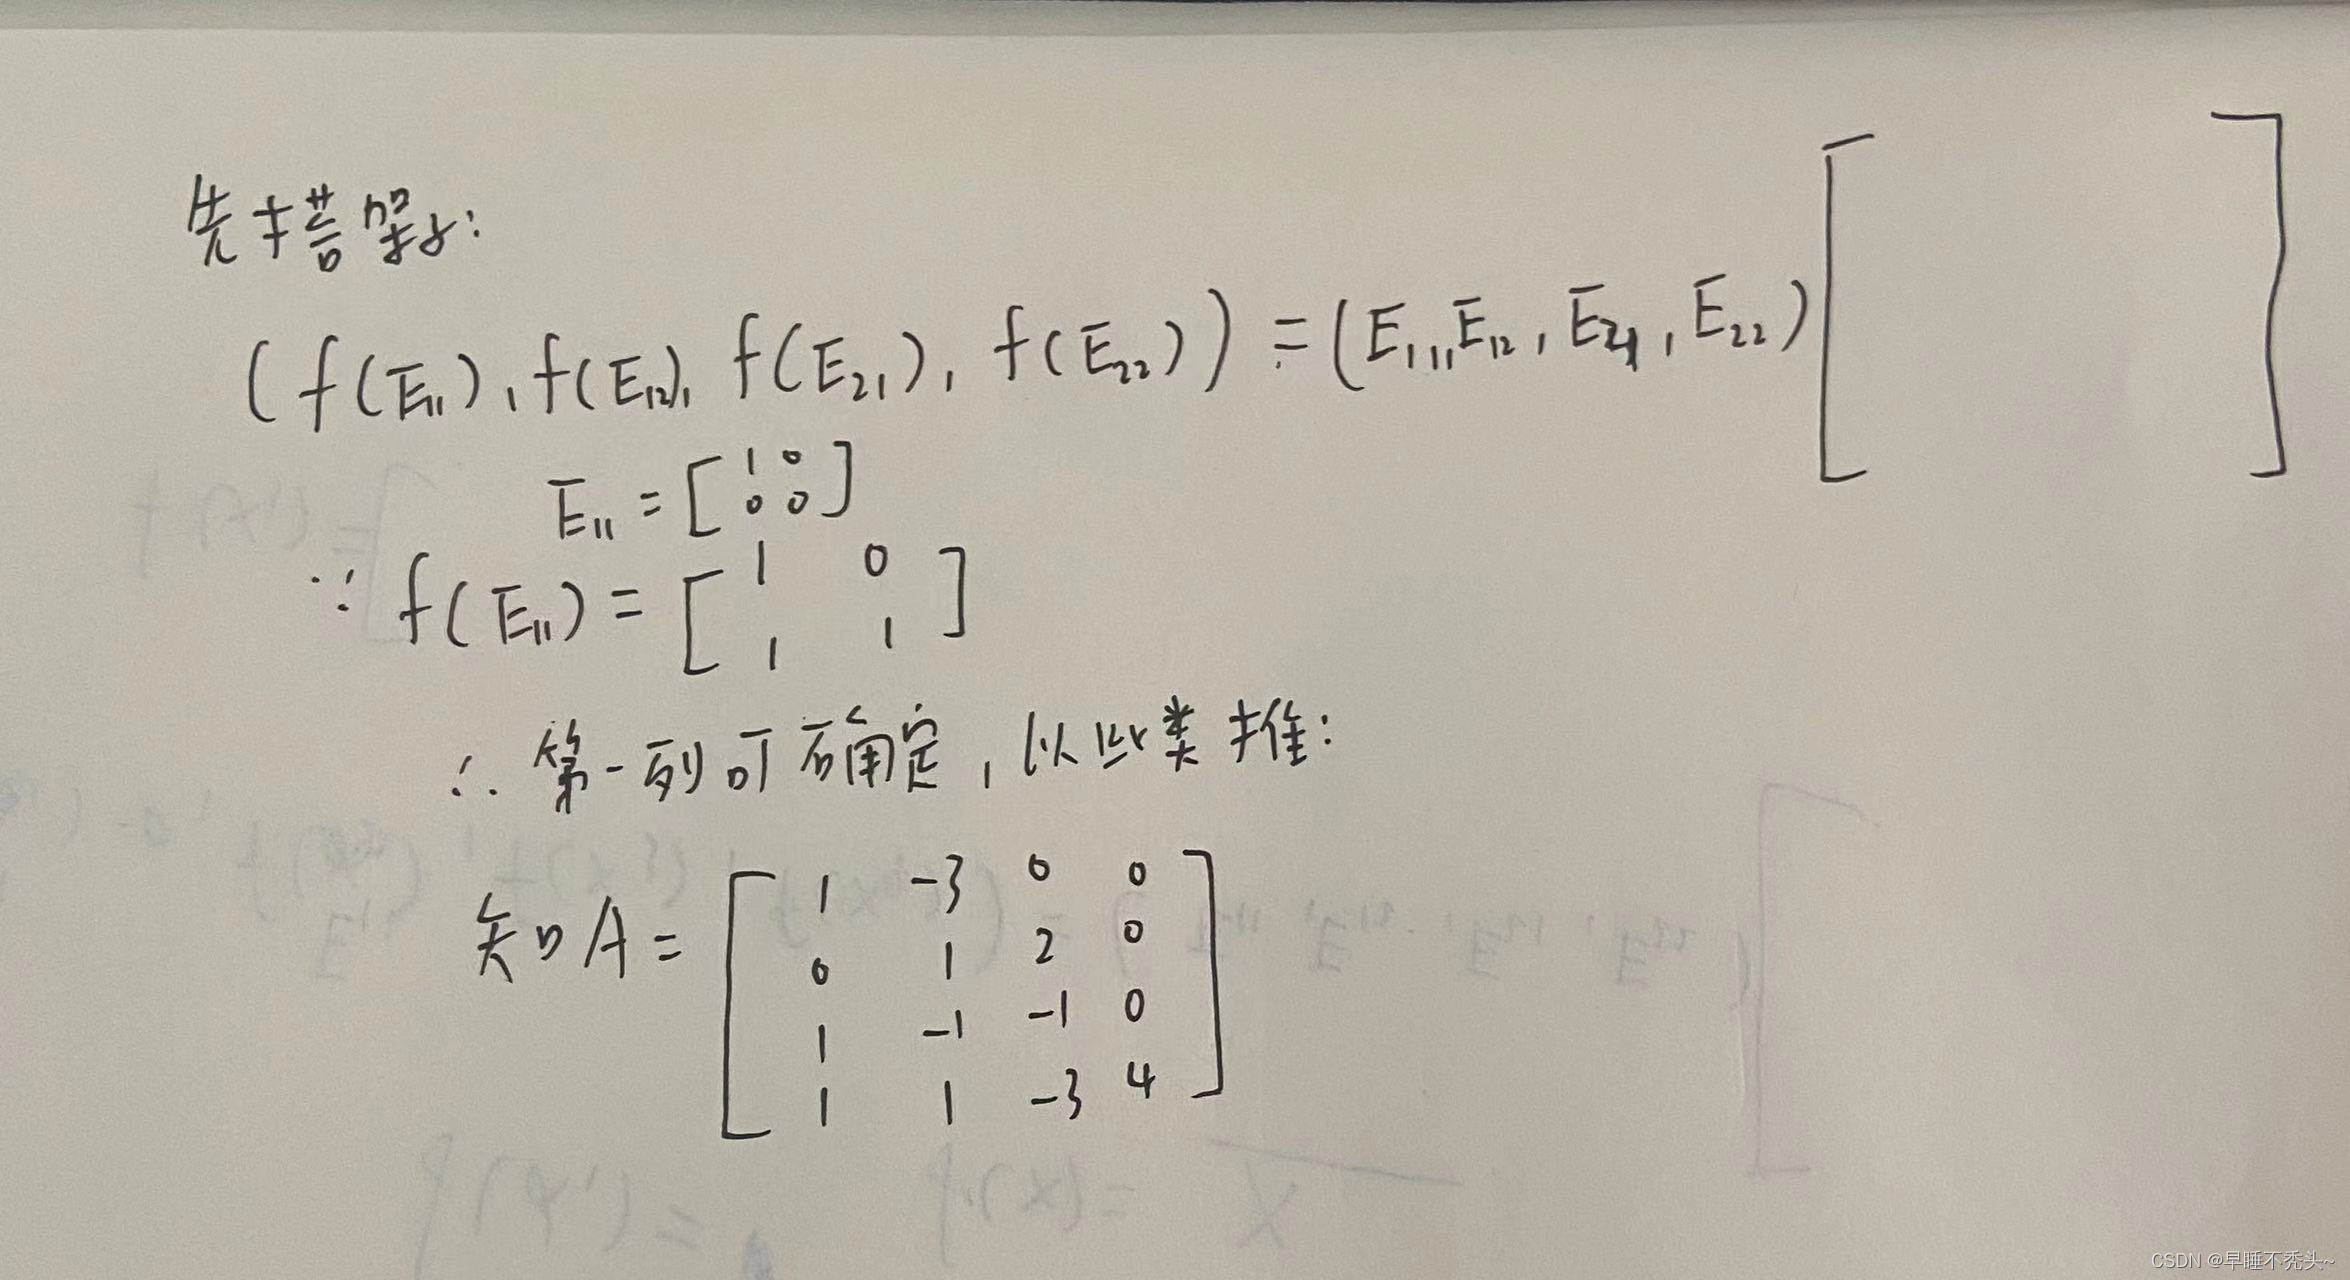 先搭架子:
(f(E₁₁), f(E₁₂), f(E₂₁), f(E₂₂)) = (E₁₁, E₁₂, E₂₁, E₂₂) [ ]
E₁₁ = [1 0
0 0]
∵ f(E₁₁) = [1 0
1 1]
∴ 第一列可确定, 以此类推:
知 A = [1 -3 0 0
0 1 2 0
1 -1 -1 0
1 1 -3 4]
CSDN @早睡不秃头~